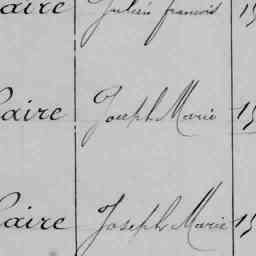 aire Julien francois 19
Caire Joseph Marie 19
Caire Joseph Marie 19